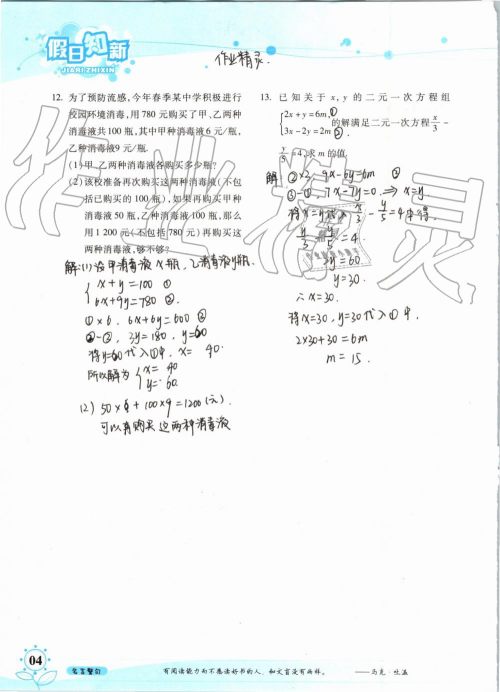 假日知新
JIARI ZHIXIN
作业精灵.
12. 为了预防流感,今年春季某中学积极进行
校园环境消毒,用780元购买了甲、乙两种
消毒液共100瓶,其中甲种消毒液6元/瓶,
乙种消毒液9元/瓶.
(1)甲、乙两种消毒液各购买多少瓶?
(2)该校准备再次购买这两种消毒液(不包
括已购买的100瓶),如果再购买甲种
消毒液50瓶,乙种消毒液100瓶,那么
用1 200元(不包括780元)再购买这
两种消毒液,够不够?
解:(1)设甲消毒液x瓶,乙消毒液y瓶.
x+y=100 ①
6x+9y=780 ②.
①×6. 6x+6y=600 ③
②-③, 3y=180, y=60
将y=60代入①中, x= 40.
所以解为 x= 40
y= 60.
(2) 50×6+100×9=1200(元).
可以再购买这两种消毒液
13. 已知关于x,y的二元一次方程组
2x+y=6m, ①
3x-2y=2m ②
的解满足二元一次方程 x/3 -
y/5 =4,求m的值.
解: ②×3 9x-6y=6m ③
③-①, 7x-7y=0, ⇒ x=y
将x=y代入 x/3 - y/5 =4中得.
y/3 - y/5 = 4.
2y=60
y=30.
∴x=30.
将x=30, y=30代入①中,
2×30+30=6m
m=15.
作业精灵
04
名言警句
有阅读能力而不愿读好书的人,和文盲没有两样。
——马克·吐温